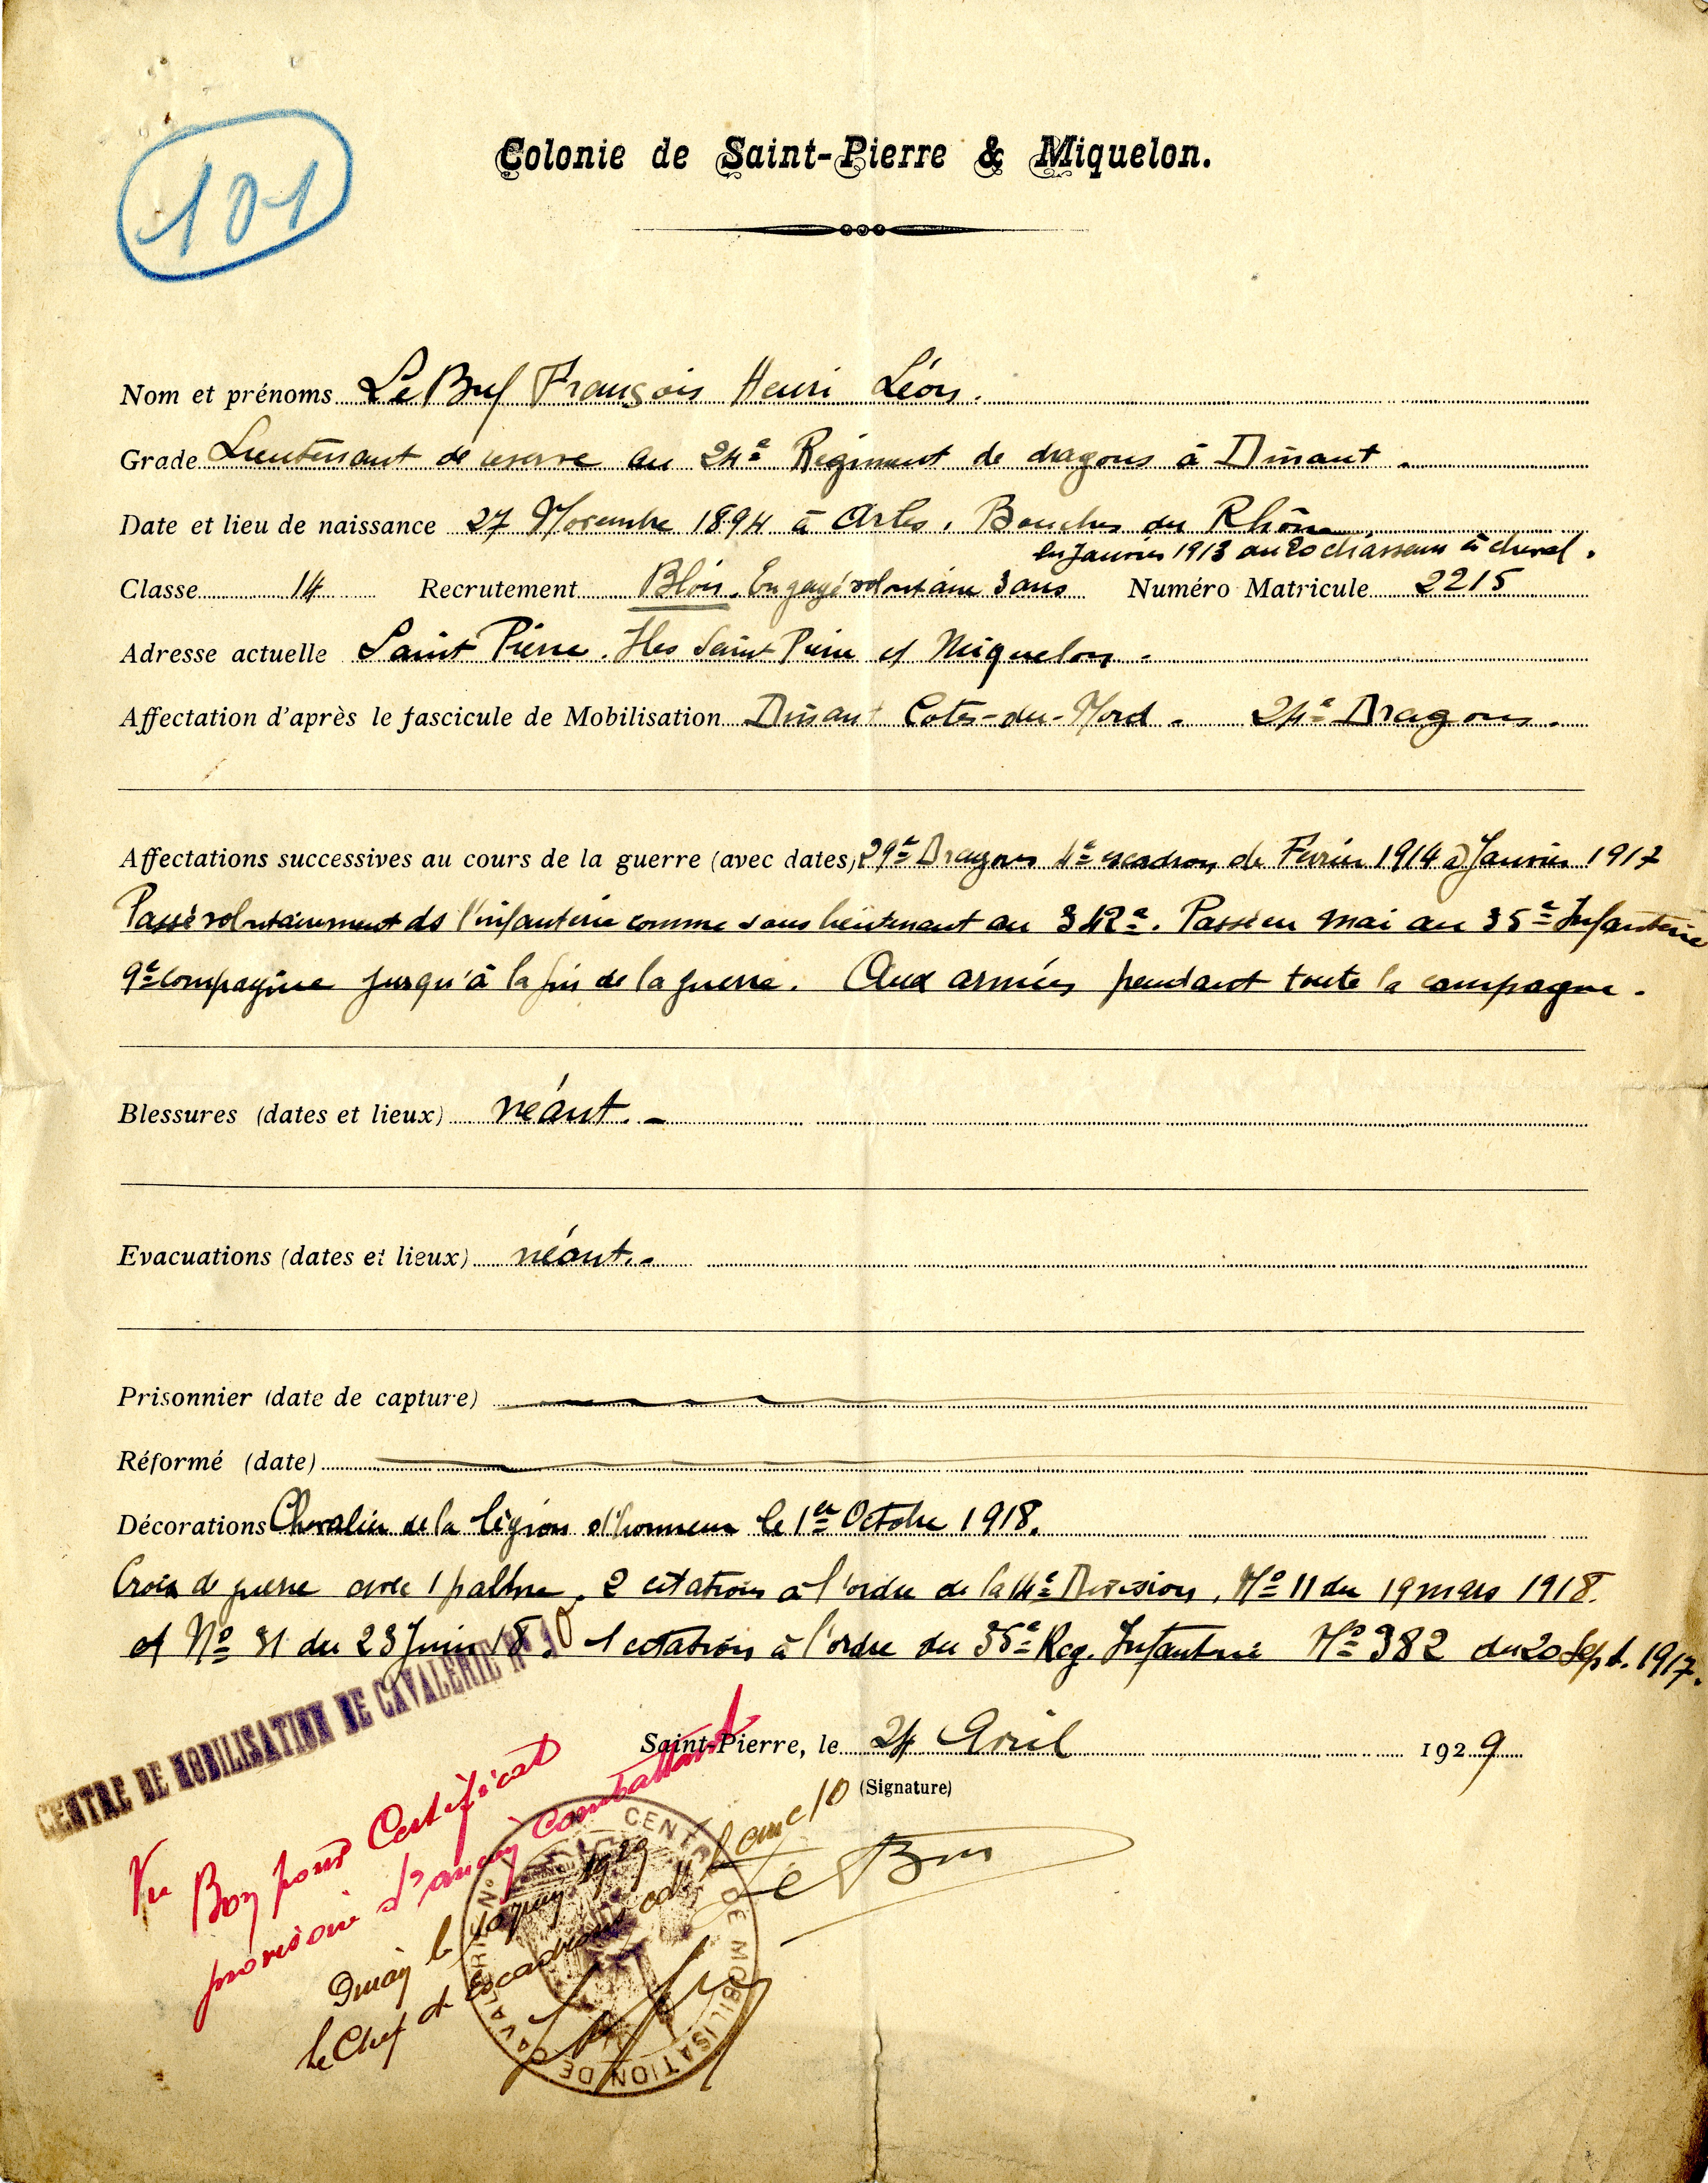 101
Colonie de Saint-Pierre & Miquelon.
Nom et prénoms Le Buf François Henri Léon.
Grade Lieutenant de réserve au 24e Régiment de dragons à Dinant.
Date et lieu de naissance 27 Novembre 1894 à Arles, Bouches du Rhône
en Janvier 1913 au 20 chasseurs à cheval.
Classe 14 Recrutement Blois. Engagé volontaire 3 ans Numéro Matricule 2215
Adresse actuelle Saint Pierre. Iles Saint Pierre et Miquelon.
Affectation d'après le fascicule de Mobilisation Dinant Cotes-du-Nord. 24e Dragons.
Affectations successives au cours de la guerre (avec dates) 29e Dragons 4e escadron de Février 1914 à Janvier 1917
Passé volontairement ds l'infanterie comme sous lieutenant au 342e. Passé en mai au 35e Infanterie
9e compagnie jusqu'à la fin de la guerre. Aux armées pendant toute la campagne.
Blessures (dates et lieux) néant. -
Evacuations (dates et lieux) néant. -
Prisonnier (date de capture)
Réformé (date)
Décorations Chevalier de la légion d'honneur le 1er Octobre 1918.
Croix de guerre avec 1 palme, 2 citations à l'ordre de la 14e Division, No 11 du 19 mars 1918.
et No 31 du 23 Juin 18. 1 citation à l'ordre du 35e Reg. Infanterie No 382 du 20 Sept. 1917.
CENTRE DE MOBILISATION DE CAVALERIE No 10
Saint-Pierre, le 24 Avril 1929
(Signature)
Vu
Bon pour Certificat
provisoire d'ancien Combattant
le 1929
le Chef d'Escadrons cdt le cmc 10
CENTRE DE MOBILISATION DE CAVALERIE No